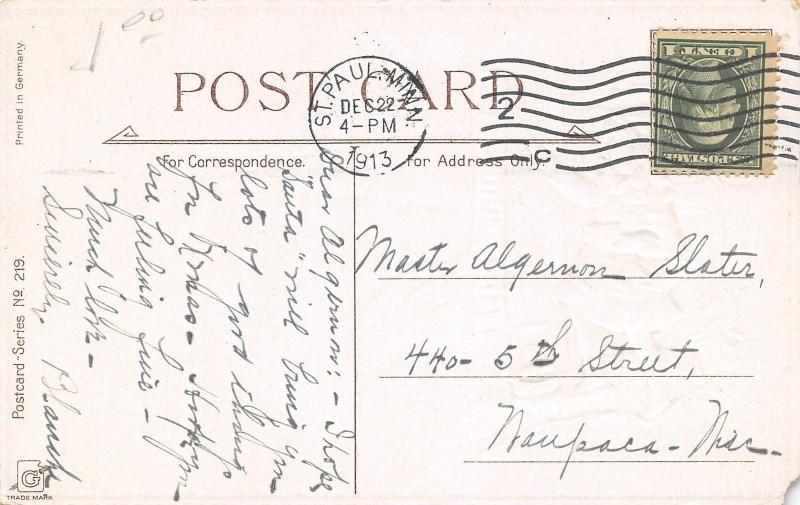 Printed in Germany.
POST CARD
ST. PAUL. MINN
DEC 22
4-PM
1913
2
C
For Correspondence.
For Address Only.
Dear Algernon:- I hope
"Santa" will bring you
lots of good things
for Xmas- Hope you
are feeling fine-
Much love-
Sincerely, Blanche
Master Algernon Slater,
440- 5th Street,
Waupaca- Wis-
Postcard-Series No. 219.
G
TRADE MARK
U.S. POSTAGE
1 CENT 1